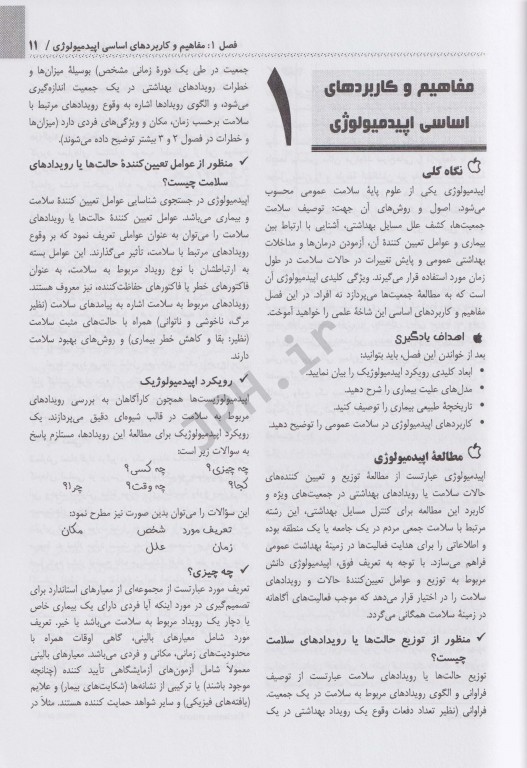 فصل ۱: مفاهیم و کاربردهای اساسی اپیدمیولوژی / ۱۱
۱
مفاهیم و کاربردهای
اساسی اپیدمیولوژی
نگاه کلی
اپیدمیولوژی یکی از علوم پایهٔ سلامت عمومی محسوب
می‌شود. اصول و روش‌های آن جهت: توصیف سلامت
جمعیت‌ها، کشف علل مسایل بهداشتی، آشنایی با ارتباط بین
بیماری و عوامل تعیین کنندهٔ آن، آزمودن درمان‌ها و مداخلات
بهداشتی عمومی و پایش تغییرات در حالات سلامت در طول
زمان مورد استفاده قرار می‌گیرند. ویژگی کلیدی اپیدمیولوژی آن
است که به مطالعهٔ جمعیت‌ها می‌پردازد نه افراد. در این فصل
مفاهیم و کاربردهای اساسی این شاخهٔ علمی را خواهید آموخت.
اهداف یادگیری
بعد از خواندن این فصل، باید بتوانید:
• ابعاد کلیدی رویکرد اپیدمیولوژیک را بیان نمایید.
• مدل‌های علیت بیماری را شرح دهید.
• تاریخچهٔ طبیعی بیماری را توصیف کنید.
• کاربردهای اپیدمیولوژی در سلامت عمومی را توضیح دهید.
مطالعهٔ اپیدمیولوژی
اپیدمیولوژی عبارتست از مطالعهٔ توزیع و تعیین کننده‌های
حالات سلامت یا رویدادهای بهداشتی در جمعیت‌های ویژه و
کاربرد این مطالعه برای کنترل مسایل بهداشتی. این رشته
مرتبط با سلامت جمعی مردم در یک جامعه یا یک منطقه بوده
و اطلاعاتی را برای هدایت فعالیت‌ها در زمینهٔ بهداشت عمومی
فراهم می‌سازد. با توجه به تعریف فوق، اپیدمیولوژی دانش
مربوط به توزیع و عوامل تعیین‌کنندهٔ حالات و رویدادهای
سلامت را در اختیار قرار می‌دهد که موجب فعالیت‌های آگاهانه
در زمینهٔ سلامت همگانی می‌گردد.
✓ منظور از توزیع حالت‌ها یا رویدادهای سلامت
چیست؟
توزیع حالت‌ها یا رویدادهای سلامت عبارتست از توصیف
فراوانی و الگوی رویدادهای مربوط به سلامت در یک جمعیت.
فراوانی (نظیر تعداد دفعات وقوع یک رویداد بهداشتی در یک
جمعیت در طی یک دورهٔ زمانی مشخص) بوسیلهٔ میزان‌ها و
خطرات رویدادهای بهداشتی در یک جمعیت اندازه‌گیری
می‌شود، و الگوی رویدادها اشاره به وقوع رویدادهای مرتبط با
سلامت برحسب زمان، مکان و ویژگی‌های فردی دارد (میزان‌ها
و خطرات در فصول ۲ و ۳ بیشتر توضیح داده می‌شوند).
✓ منظور از عوامل تعیین‌کنندهٔ حالت‌ها یا رویدادهای
سلامت چیست؟
اپیدمیولوژی در جستجوی شناسایی عوامل تعیین کنندهٔ سلامت
و بیماری می‌باشد. عوامل تعیین کنندهٔ حالت‌ها یا رویدادهای
سلامت را می‌توان به عنوان عواملی تعریف نمود که بر وقوع
رویدادهای مرتبط با سلامت، تأثیر می‌گذارند. این عوامل بسته
به ارتباطشان با نوع رویداد مربوط به سلامت، به عنوان
فاکتورهای خطر یا فاکتورهای حفاظت‌کننده، نیز معروف هستند.
رویدادهای مربوط به سلامت اشاره به پیامدهای سلامت (نظیر
مرگ، ناخوشی و ناتوانی) همراه با حالت‌های مثبت سلامت
(نظیر: بقا و کاهش خطر بیماری) و روش‌های بهبود سلامت
دارند.
✓ رویکرد اپیدمیولوژیک
اپیدمیولوژیست‌ها همچون کارآگاهان به بررسی رویدادهای
مربوط به سلامت در قالب شیوه‌ای دقیق می‌پردازند. یک
رویکرد اپیدمیولوژیک برای مطالعهٔ این رویدادها، مستلزم پاسخ
به سوالات زیر است:
چه چیزی؟ چه کسی؟
کجا؟ چه وقت؟ چرا؟
این سؤالات را می‌توان بدین صورت نیز مطرح نمود:
تعریف مورد شخص مکان
زمان علل
✓ چه چیزی؟
تعریف مورد عبارتست از مجموعه‌ای از معیارهای استاندارد برای
تصمیم‌گیری در مورد اینکه آیا فردی دارای یک بیماری خاص
یا دچار یک رویداد مربوط به سلامت می‌باشد یا خیر. تعریف
مورد شامل معیارهای بالینی، گاهی اوقات همراه با
محدودیت‌های زمانی، مکانی و فردی می‌باشد. معیارهای بالینی
معمولاً شامل آزمون‌های آزمایشگاهی تأیید کننده (چنانچه
موجود باشند) یا ترکیبی از نشانه‌ها (شکایت‌های بیمار) و علایم
(یافته‌های فیزیکی) و سایر شواهد حمایت کننده هستند. مثلاً در
JPH.ir